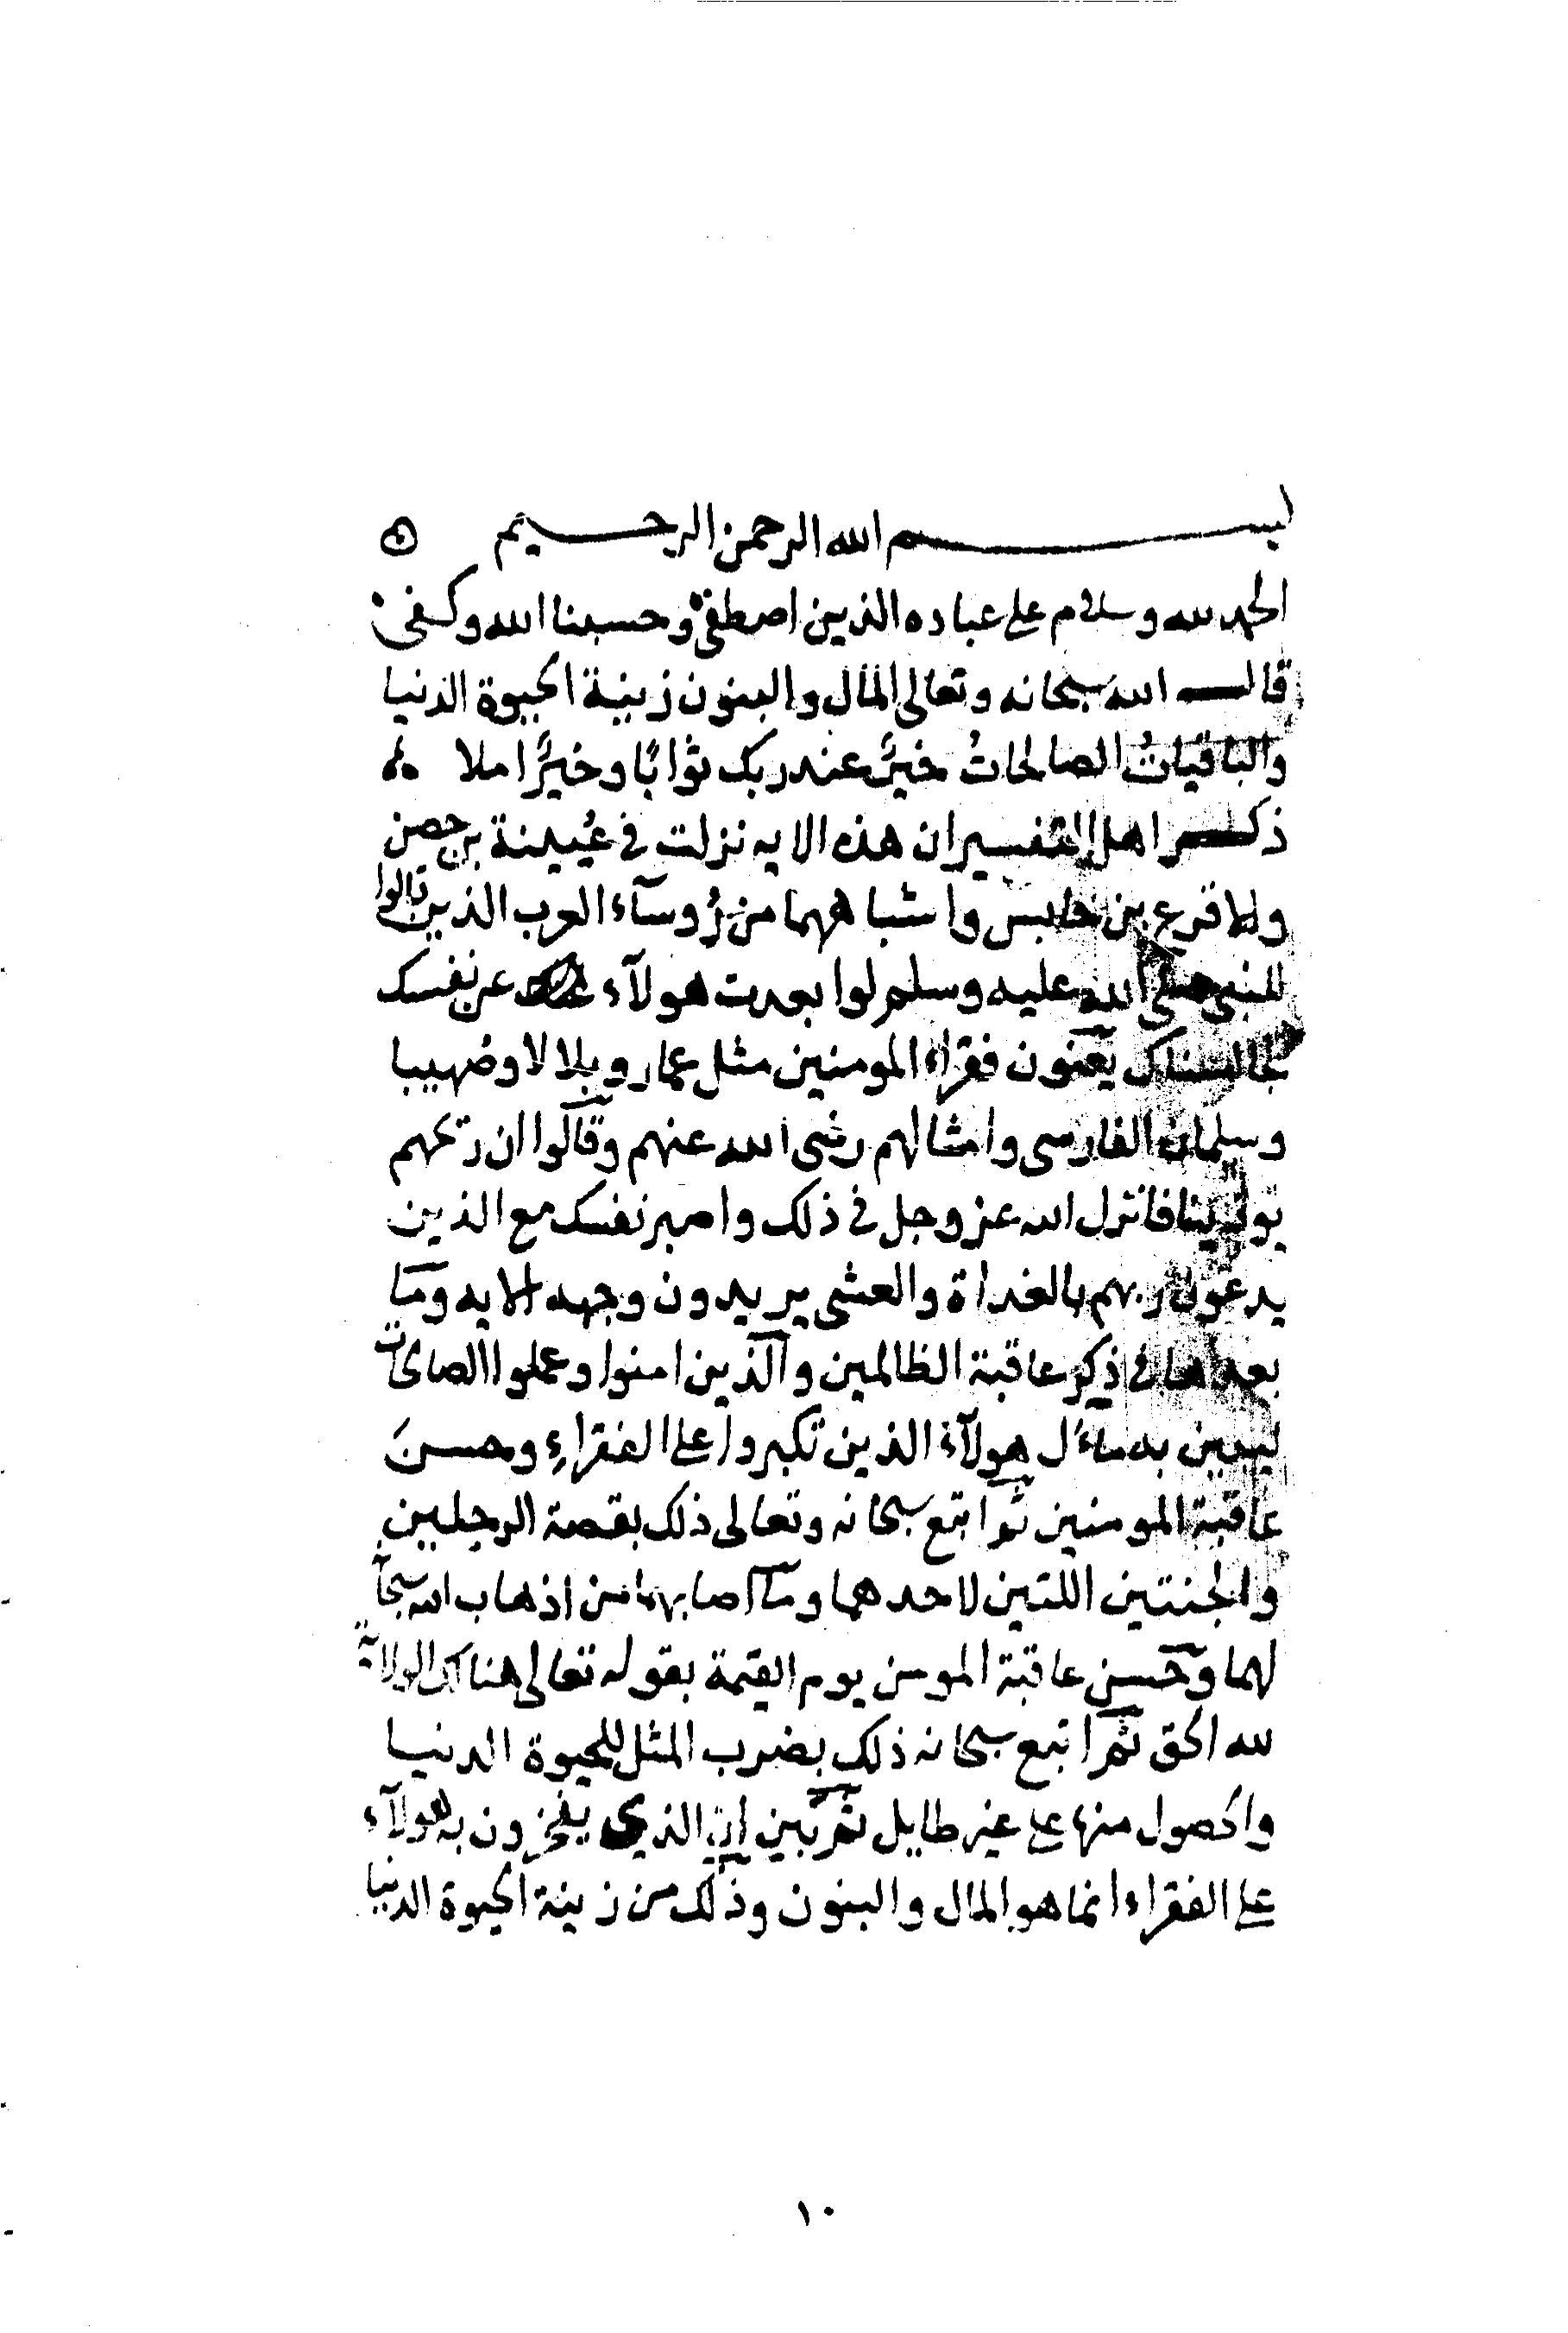 بسم الله الرحمن الرحيم
الحمد لله وسلام على عباده الذين اصطفى وحسبنا الله وكفى
قال الله سبحانه وتعالى المال والبنون زينة الحيوة الدنيا
والباقياتُ الصالحاتُ خيرٌ عند ربك ثوابًا وخيرٌ املا
ذكر اهل التفسير ان هذه الايه نزلت في عُيينة بن حصن
والاقرع بن حابس واشباههما من رُوسآء العرب الذين قالوا
للنبي صلى الله عليه وسلم لو ابعدت هولآء عن نفسك
لجالسناك يعنون فقراء المومنين مثل عمار وبلالا وصهيبا
وسلمان الفارسي وامثالهم رضي الله عنهم وقالوا ان ريحهم
يوذينا فانزل الله عز وجل في ذلك واصبر نفسك مع الذين
يدعون ربهم بالغداة والعشي يريدون وجهه الايه وما
بعدها في ذكر عاقبة الظالمين والذين امنوا وعملوا الصالحات
ليبين به مآل هولآء الذين تكبروا على الفقراءِ وحسنَ
عاقبة المومنين ثم اتبع سبحانه وتعالى ذلك بقصة الرجلين
والجنتين اللتين لاحدهما وما اصابهما من اذهاب الله سبحانه
لهما وحسن عاقبة المومن يوم القيمة بقوله تعالى هنالك الولاية
لله الحق ثم اتبع سبحانه ذلك بضرب المثل للحيوة الدنيا
والحصول منها على غير طايل ثم بين ان الذي يفخرون به هولآء
على الفقراء انما هو المال والبنون وذلك من زينة الحيوة الدنيا
١٠